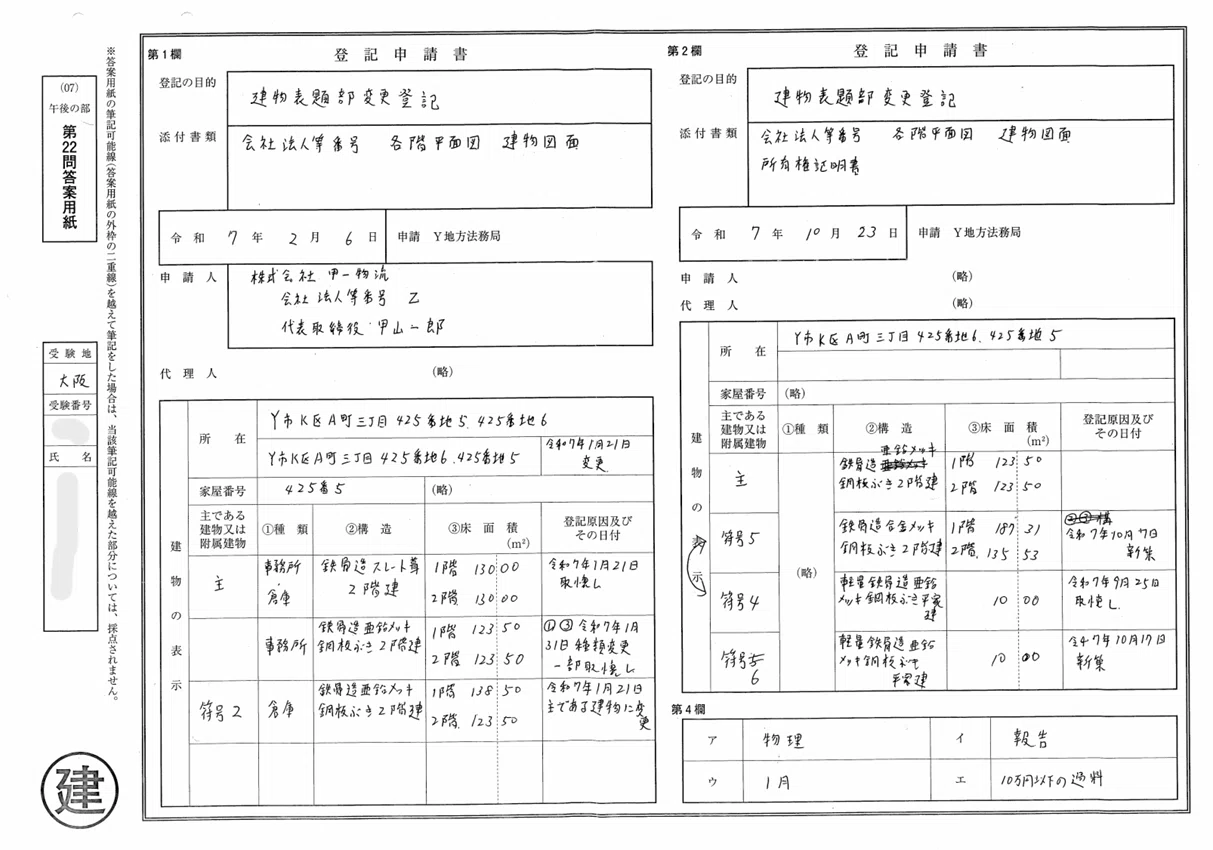 (07)
午後の部
第22問答案用紙
受験地
大阪
受験番号
氏名
建
※答案用紙の筆記可能線(答案用紙の外枠の二重線)を越えて筆記をした場合は、当該筆記可能線を越えた部分については、採点されません。
第1欄 登記申請書
登記の目的 建物表題部変更登記
添付書類 会社法人等番号 各階平面図 建物図面
令和 7年 2月 6日 申請 Y地方法務局
申請人 株式会社 甲一物流
会社法人等番号 乙
代表取締役 甲山一郎
代理人 (略)
建物の表示
所在 Y市K区A町三丁目 425番地5、425番地6
Y市K区A町三丁目 425番地6、425番地5 令和7年1月21日
変更
家屋番号 425番5 (略)
主である建物又は附属建物 ①種類 ②構造 ③床面積(㎡) 登記原因及びその日付
主 事務所 鉄骨造スレート葺 1階 130 00 令和7年1月21日
倉庫 2階建 2階 130 00 取壊し
事務所 鉄骨造亜鉛メッキ 1階 123 50 ①③令和7年1月
鋼板ぶき2階建 2階 123 50 31日種類変更
一部取壊し
符号2 倉庫 鉄骨造亜鉛メッキ 1階 138 50 令和7年1月21日
鋼板ぶき2階建 2階 123 50 主である建物に変更
第2欄 登記申請書
登記の目的 建物表題部変更登記
添付書類 会社法人等番号 各階平面図 建物図面
所有権証明書
令和 7年 10月 23日 申請 Y地方法務局
申請人 (略)
代理人 (略)
建物の表示
所在 Y市K区A町三丁目425番地6、425番地5
家屋番号 (略)
主である建物又は附属建物 ①種類 ②構造 ③床面積(㎡) 登記原因及びその日付
(略)
亜鉛メッキ
主 鉄骨造亜鉛メッキ 1階 123 50
鋼板ぶき2階建 2階 123 50
符号5 鉄骨造合金メッキ 1階 187 31 令和7年10月7日
鋼板ぶき2階建 2階 135 53 新築
符号4 軽量鉄骨造亜鉛 令和7年9月25日
メッキ鋼板ぶき平家建 10 00 取壊し
符号5 軽量鉄骨造亜鉛 令和7年10月17日
6 メッキ鋼板ぶき 10 00 新築
平家建
第4欄
ア 物理 イ 報告
ウ 1月 エ 10万円以下の過料